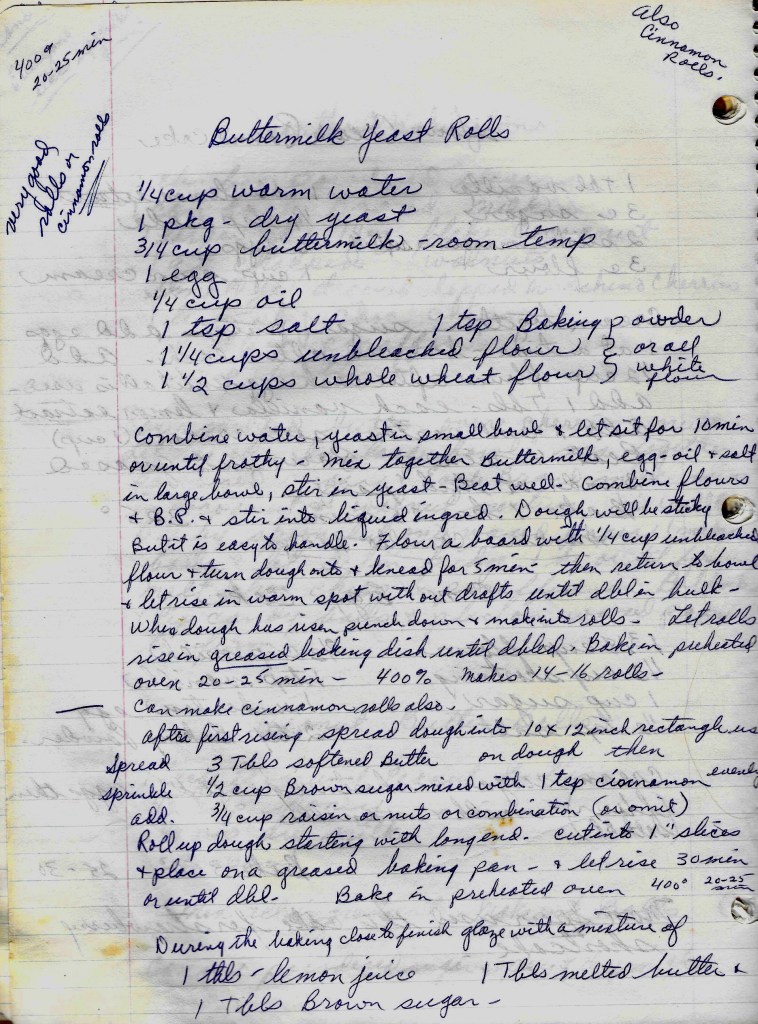 also
Cinnamon
Rolls.
400°
20-25 min
very good
rolls or
cinnamon rolls
Buttermilk Yeast Rolls
1/4 cup warm water
1 pkg - dry yeast
3/4 cup buttermilk - room temp
1 egg
1/4 cup oil
1 tsp salt 1 tsp Baking powder
1 1/4 cups unbleached flour } or all
1 1/2 cups whole wheat flour } white flour
Combine water, yeast in small bowl & let sit for 10 min
or until frothy - Mix together Buttermilk, egg - oil & salt
in large bowl, stir in yeast - Beat well. Combine flours
& B.P. & stir into liquid ingred. Dough will be sticky
But it is easy to handle. Flour a board with 1/4 cup unbleached
flour & turn dough onto & knead for 5 min - then return to bowl
& let rise in warm spot with out drafts until dbl in bulk -
When dough has risen punch down & make into rolls - Let rolls
rise in greased baking dish until dbled. Bake in preheated
oven 20-25 min - 400% Makes 14-16 rolls -
Can make cinnamon rolls also.
After first rising spread dough into 10 x 12 inch rectangle
Spread 3 Tbls softened Butter on dough then
sprinkle 1/2 cup Brown sugar mixed with 1 tsp cinnamon evenly
add. 3/4 cup raisin or nuts or combination (or omit)
Roll up dough starting with long end. cut into 1" slices
& place on a greased baking pan - & let rise 30 min
or until dbl. Bake in preheated oven 400° 20-25 min
During the baking close to finish glaze with a mixture of
1 tbls - lemon juice 1 Tbls melted butter &
1 Tbls Brown sugar -